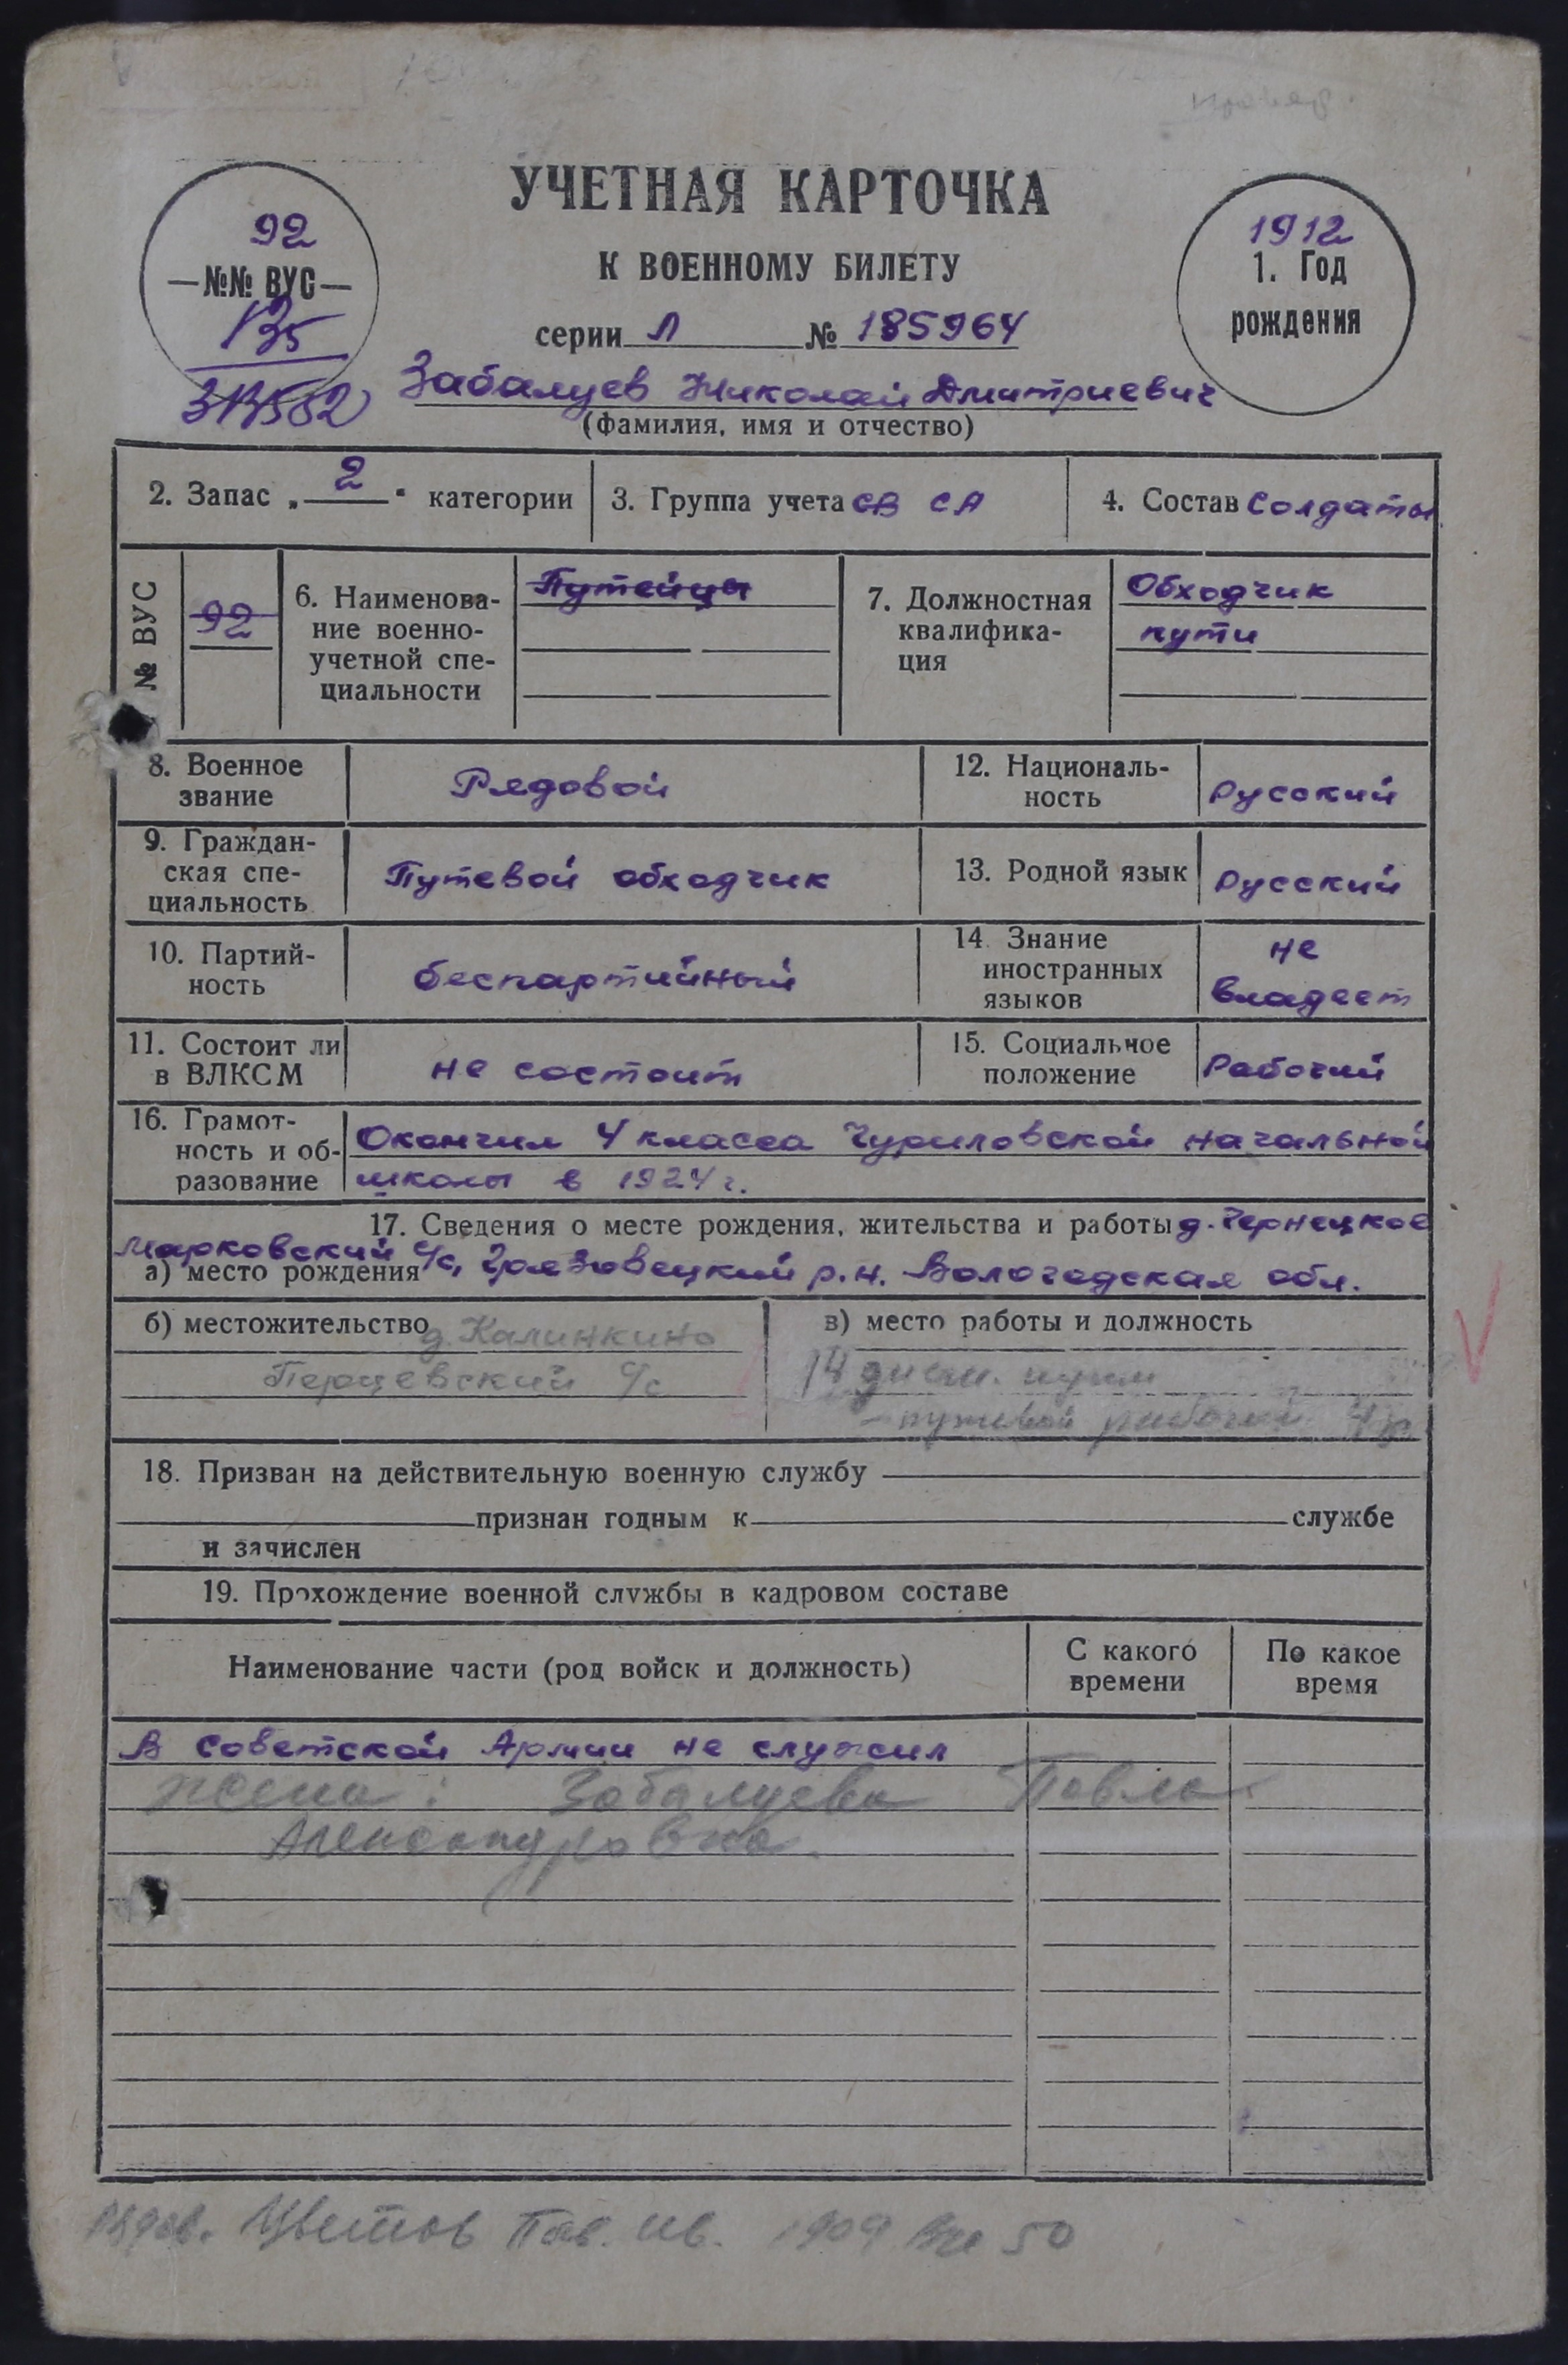 УЧЕТНАЯ КАРТОЧКА
К ВОЕННОМУ БИЛЕТУ
серии Л № 185964
92
№№ ВУС
135
1912
1. Год
рождения
Забалуев Николай Дмитриевич
(фамилия, имя и отчество)
2. Запас „ 2 “ категории
3. Группа учета СВ СА
4. Состав солдаты
№ ВУС
92
6. Наименова-
ние военно-
учетной спе-
циальности
Путейцы
7. Должностная
квалифика-
ция
Обходчик
пути
8. Военное
звание
Рядовой
12. Националь-
ность
русский
9. Граждан-
ская спе-
циальность
Путевой обходчик
13. Родной язык
русский
10. Партий-
ность
беспартийный
14. Знание
иностранных
языков
не
владеет
11. Состоит ли
в ВЛКСМ
не состоит
15. Социальное
положение
Рабочий
16. Грамот-
ность и об-
разование
Окончил 4 класса Чуриловской начальной
школы в 1924 г.
17. Сведения о месте рождения, жительства и работы д. Чернецкое
Марковский с/с, Грязовецкий р.н. Вологодская обл.
а) место рождения
б) местожительство д. Калинкино
Перцевский с/с
в) место работы и должность
14 дист. пути
– путевой рабочий
18. Призван на действительную военную службу
признан годным к службе
и зачислен
19. Прохождение военной службы в кадровом составе
Наименование части (род войск и должность)
С какого
времени
По какое
время
В Советской Армии не служил
жена: Забалуева Павла
Александровна.
Цветов Пав. Ив. 1909 50